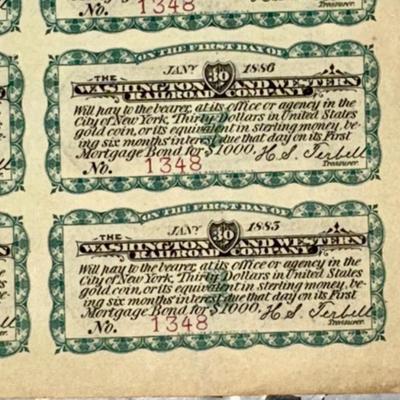 No. 1348 Treasurer.
ON THE FIRST DAY OF
JANY 30 1886
THE WASHINGTON AND WESTERN
RAILROAD COMPANY
Will pay to the bearer, at its office or agency in the
City of New York, Thirty Dollars in United States
gold coin, or its equivalent in sterling money, be-
ing six months' interest due that day on its First
Mortgage Bond for $1000. H. S. Terbell
No. 1348 Treasurer.
ON THE FIRST DAY OF
JANY 30 1885
THE WASHINGTON AND WESTERN
RAILROAD COMPANY
Will pay to the bearer, at its office or agency in the
City of New York, Thirty Dollars in United States
gold coin, or its equivalent in sterling money, be-
ing six months' interest due that day on its First
Mortgage Bond for $1000. H. S. Terbell
No. 1348 Treasurer.